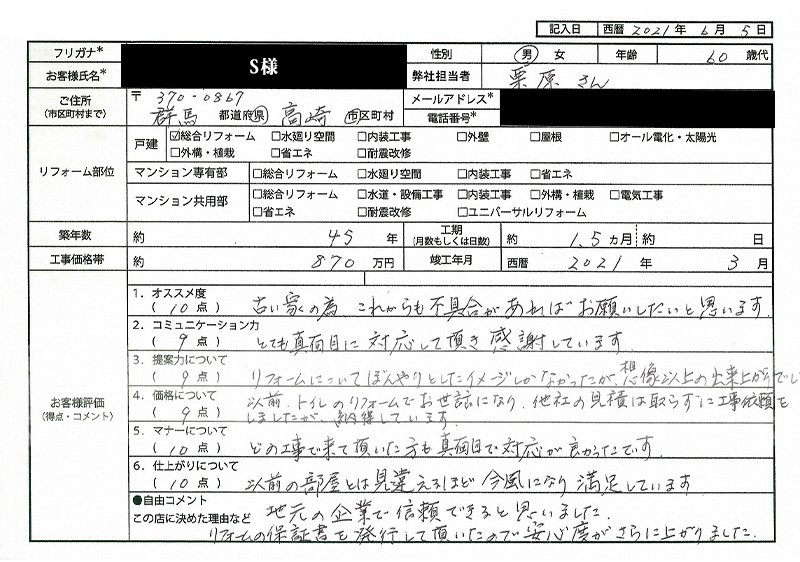 記入日 西暦 2021 年 6 月 5 日
フリガナ* S様 性別 男 女 年齢 60 歳代
お客様氏名* 弊社担当者 栗原さん
ご住所 (市区町村まで) 〒 370-0867 メールアドレス*
群馬 都道府県 高崎 市区町村 電話番号*
リフォーム部位
戸建 ☑総合リフォーム □水廻り空間 □内装工事 □外壁 □屋根 □オール電化・太陽光
□外構・植栽 □省エネ □耐震改修
マンション専有部 □総合リフォーム □水廻り空間 □内装工事 □省エネ
マンション共用部 □総合リフォーム □水道・設備工事 □内装工事 □外構・植栽 □電気工事
□省エネ □耐震改修 □ユニバーサルリフォーム
築年数 約 45 年 工期 (月数もしくは日数) 約 1.5 カ月 約 日
工事価格帯 約 870 万円 竣工年月 西暦 2021 年 3 月
お客様評価
(得点・コメント)
1. オススメ度
( 10 点 ) 古い家の為、これからも不具合があればお願いしたいと思います。
2. コミュニケーション力
( 9 点 ) とても真面目に対応して頂き感謝しています。
3. 提案力について
( 9 点 ) リフォームについてぼんやりとしたイメージしかなかったが、想像以上の出来上がりでし
4. 価格について
( 9 点 ) 以前、トイレのリフォームでお世話になり、他社の見積は取らずに工事依頼を
しましたが、納得しています。
5. マナーについて
( 10 点 ) どの工事で来て頂いた方も真面目で対応が良かったです。
6. 仕上がりについて
( 10 点 ) 以前の部屋とは見違えるほど今風になり満足しています
●自由コメント
この店に決めた理由など 地元の企業で信頼できると思いました。
リフォームの保証書も発行して頂いたので安心度がさらに上がりました。